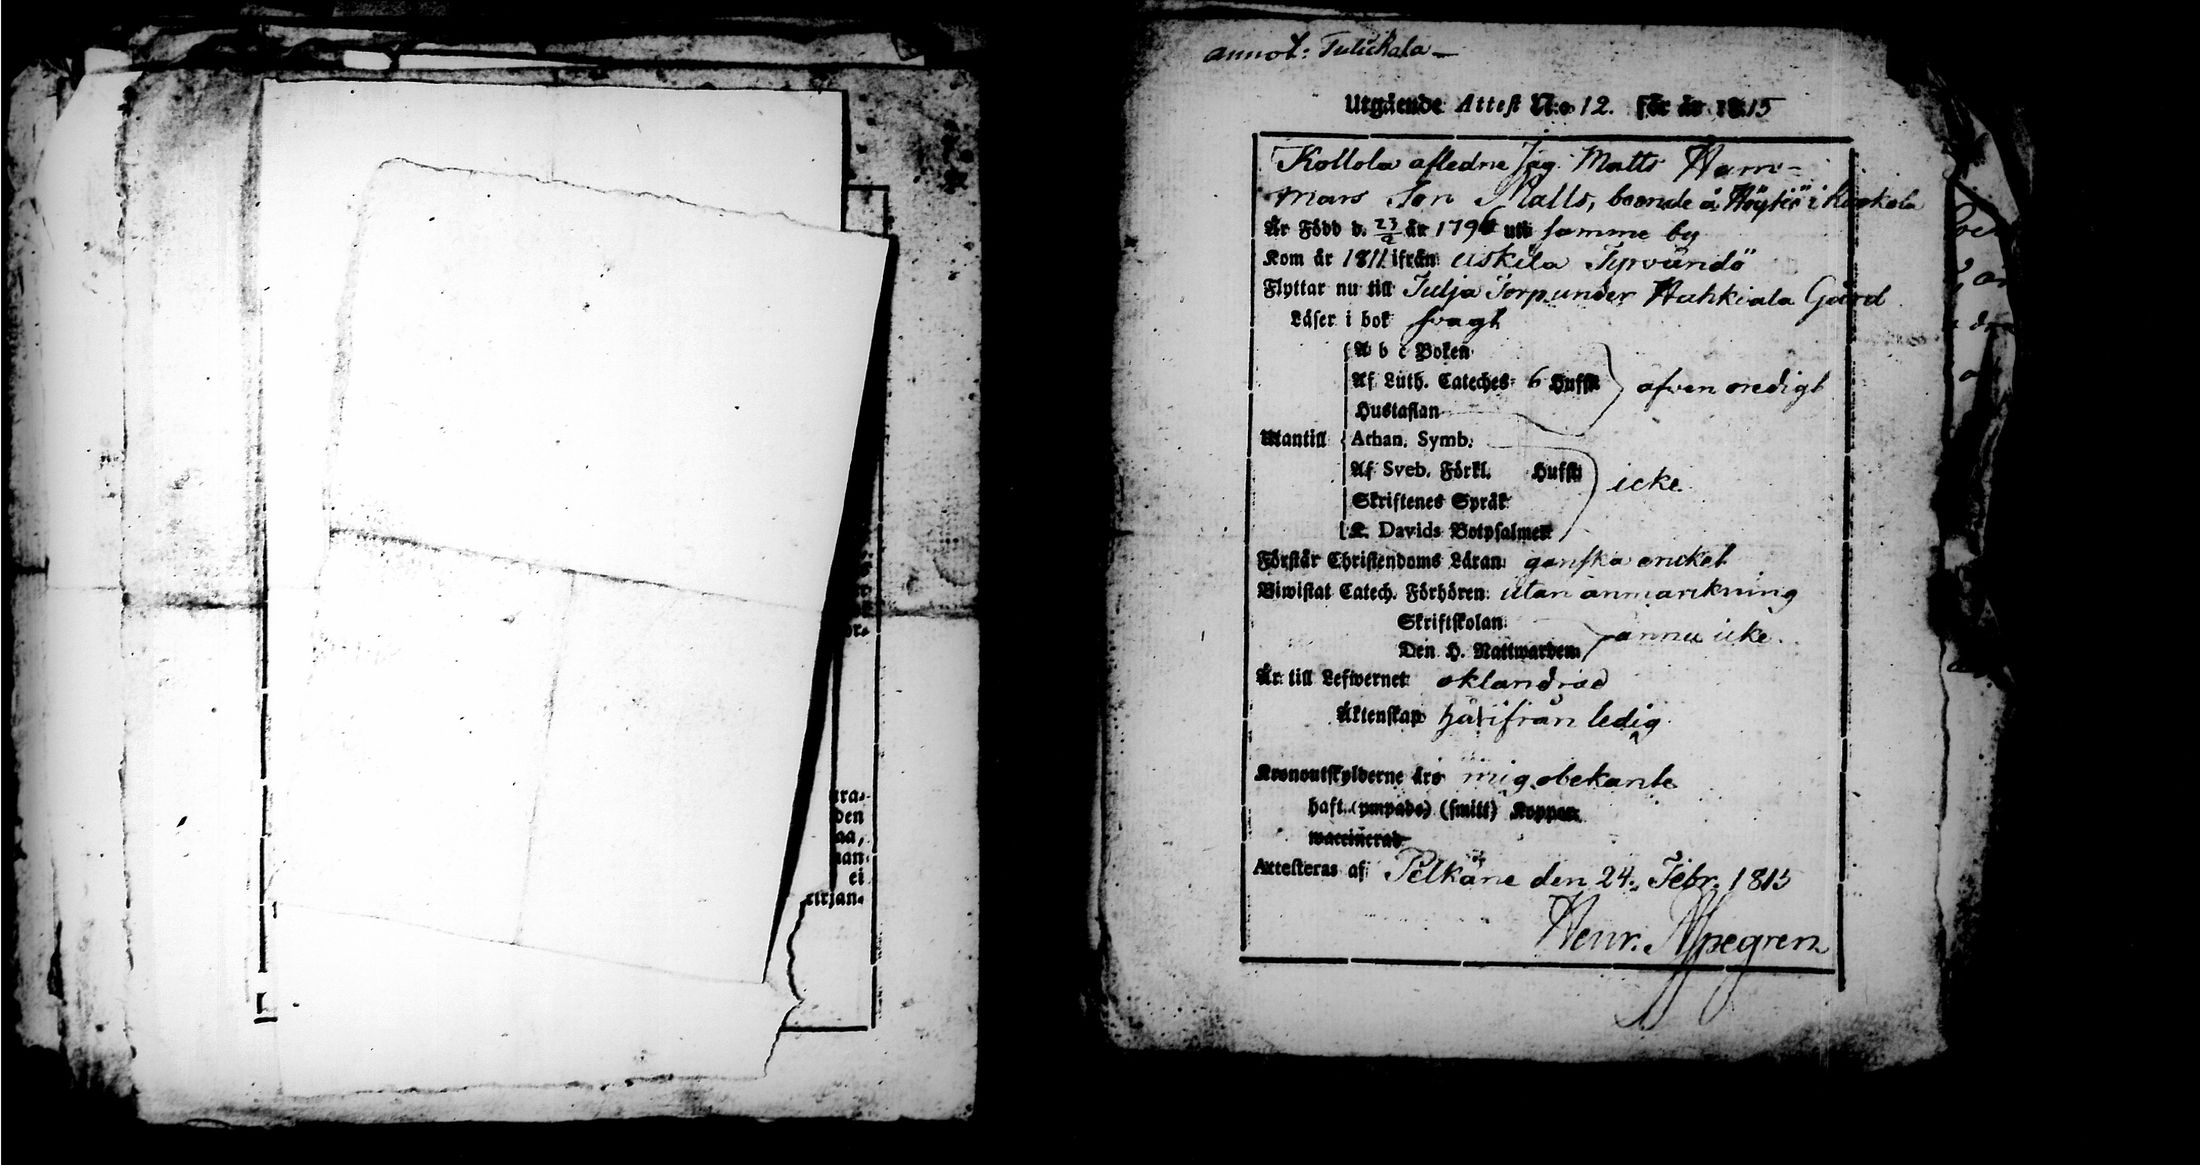 annot: Tulickala
Utgående Attest N:o 12. för år 1815
Kollola afledne Jag. Matts Ham-
mars Son Matts, boende å i
År Född d. 23/9 år 179 uti samme by
Kom år 1811 ifrån Uskila Tyrvändö
Flyttar nu till Julja Torp under Hahkiala Gård
Läser i bok svagt
A b c Boken
Af Luth. Cateches: 6 Hufst. afven oredigt
Hustaflan
Utantill Athan. Symb.
Af Sveb. Förkl. Hufst. icke
Skriftenes Språk
K. Davids Botpsalmer
Förstår Christendoms Läran: ganska enckelt
Biwistat Catech. Förhören: utan anmärkning
Skriftskolan
Den H. Nattwarden annu icke
Är till Lefwernet oklandrad
Äktenskap härifrån ledig
Kronoutskylderne äro mig obekante
haft (ympade) (smitt) Koppor
waccinerad
Attesteras af Pelkäne den 24. Febr. 1815
Henr.
ra-
den
aa,
an
ei
rirjan-